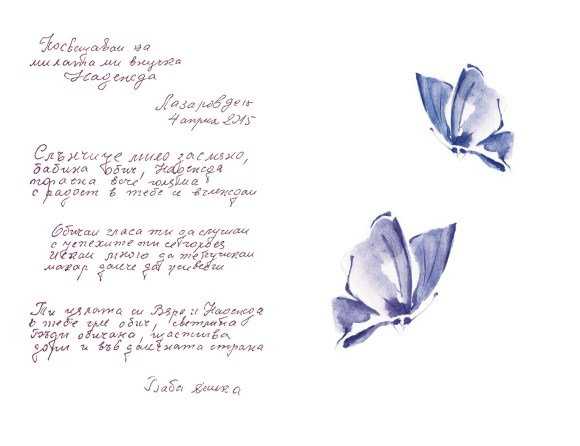 Посвещавам на
милата ми внучка
Надежда
Лазаровден
4 април 2015
Слънчице мило засмяно,
бабина обич, Надежда
порасна вече голяма
с радост в тебе и вглеждам
Обичам гласа ти да слушам
с успехите ти се гордея
Искам много да те гушкам
макар далече да живееш
Ти цялата си Вяра и Надежда
в тебе грее обич, светлина
Бъди обичана, щастлива
дори и във далечната страна
Баба